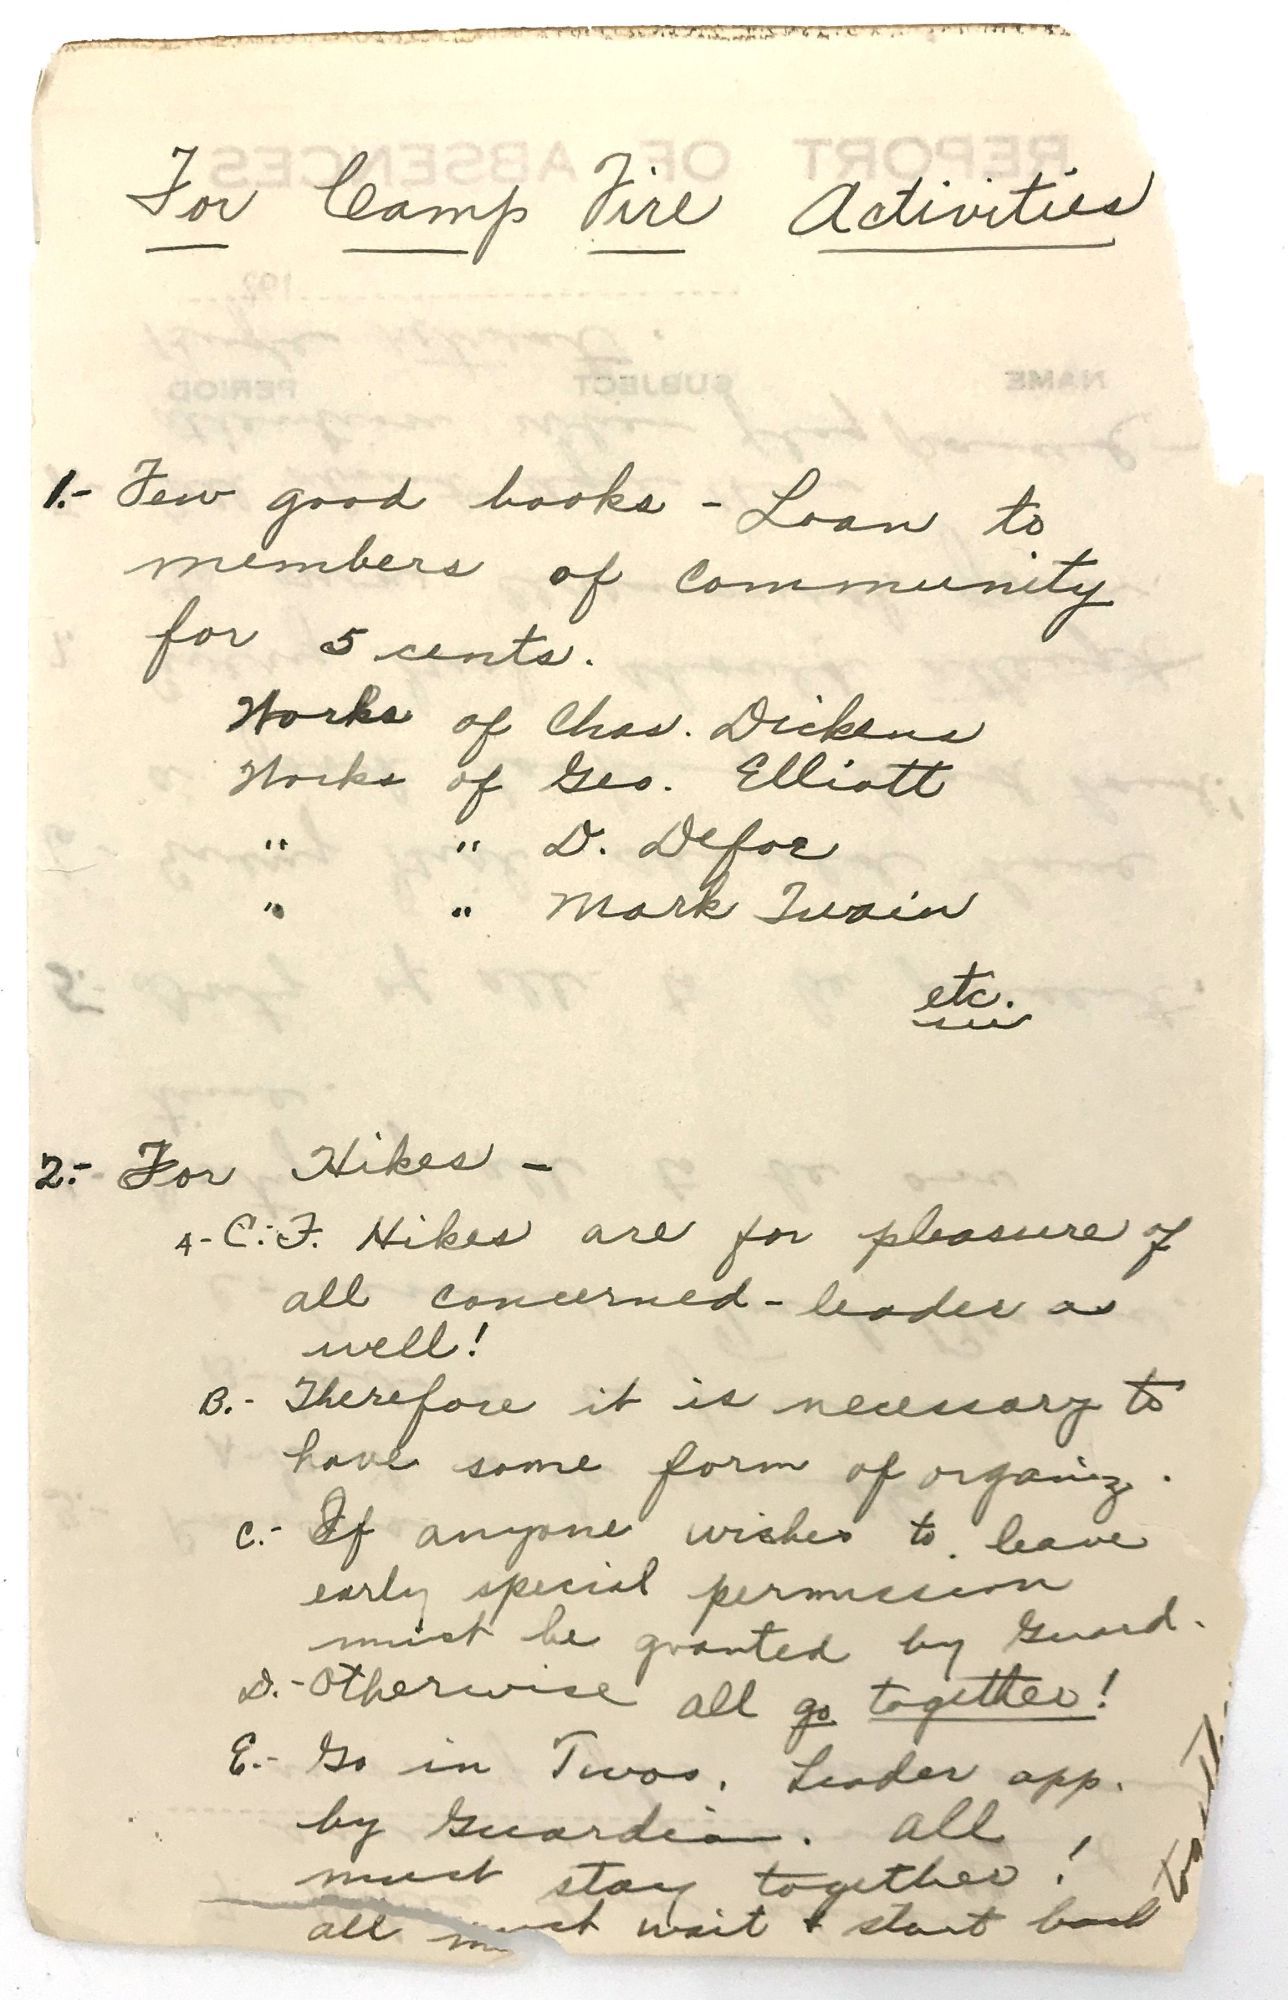 For Camp Fire Activities
1.- Few good books - Loan to
members of community
for 5 cents.
Works of Chas. Dickens
Works of Geo. Elliott
" " D. Defoe
" " Mark Twain
etc.
2.- For Hikes -
A- C.F. Hikes are for pleasure of
all concerned - leader as
well!
B.- Therefore it is necessary to
have some form of organiz.
C.- If anyone wishes to leave
early special permission
must be granted by Guard.
D.- Otherwise all go together!
E.- Go in Twos. Leader app.
by Guardian. All
must stay together!
all must wait & start back
REPORT OF ABSENCES
192
NAME SUBJECT PERIOD